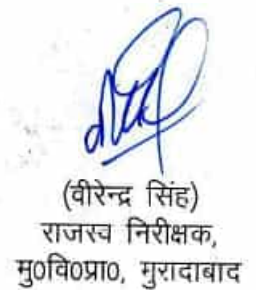 (वीरेन्द्र सिंह)
राजस्व निरीक्षक,
मु0वि0प्रा0, मुरादाबाद